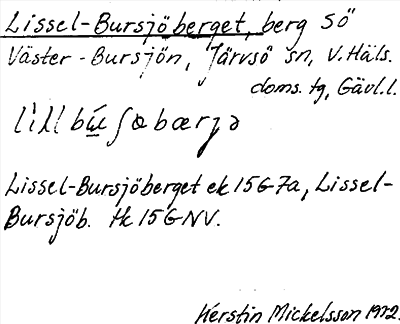 Lissel-Bursjöberget, berg SÖ
Väster-Bursjön, Järvsö sn, V. Häls.
doms. tg, Gävl. l.
lìll bu̲ʃøbærjə
Lissel-Bursjöberget ek 15G7a, Lissel-
Bursjöb. tk 15GNV.
Kerstin Mickelsson 1972.